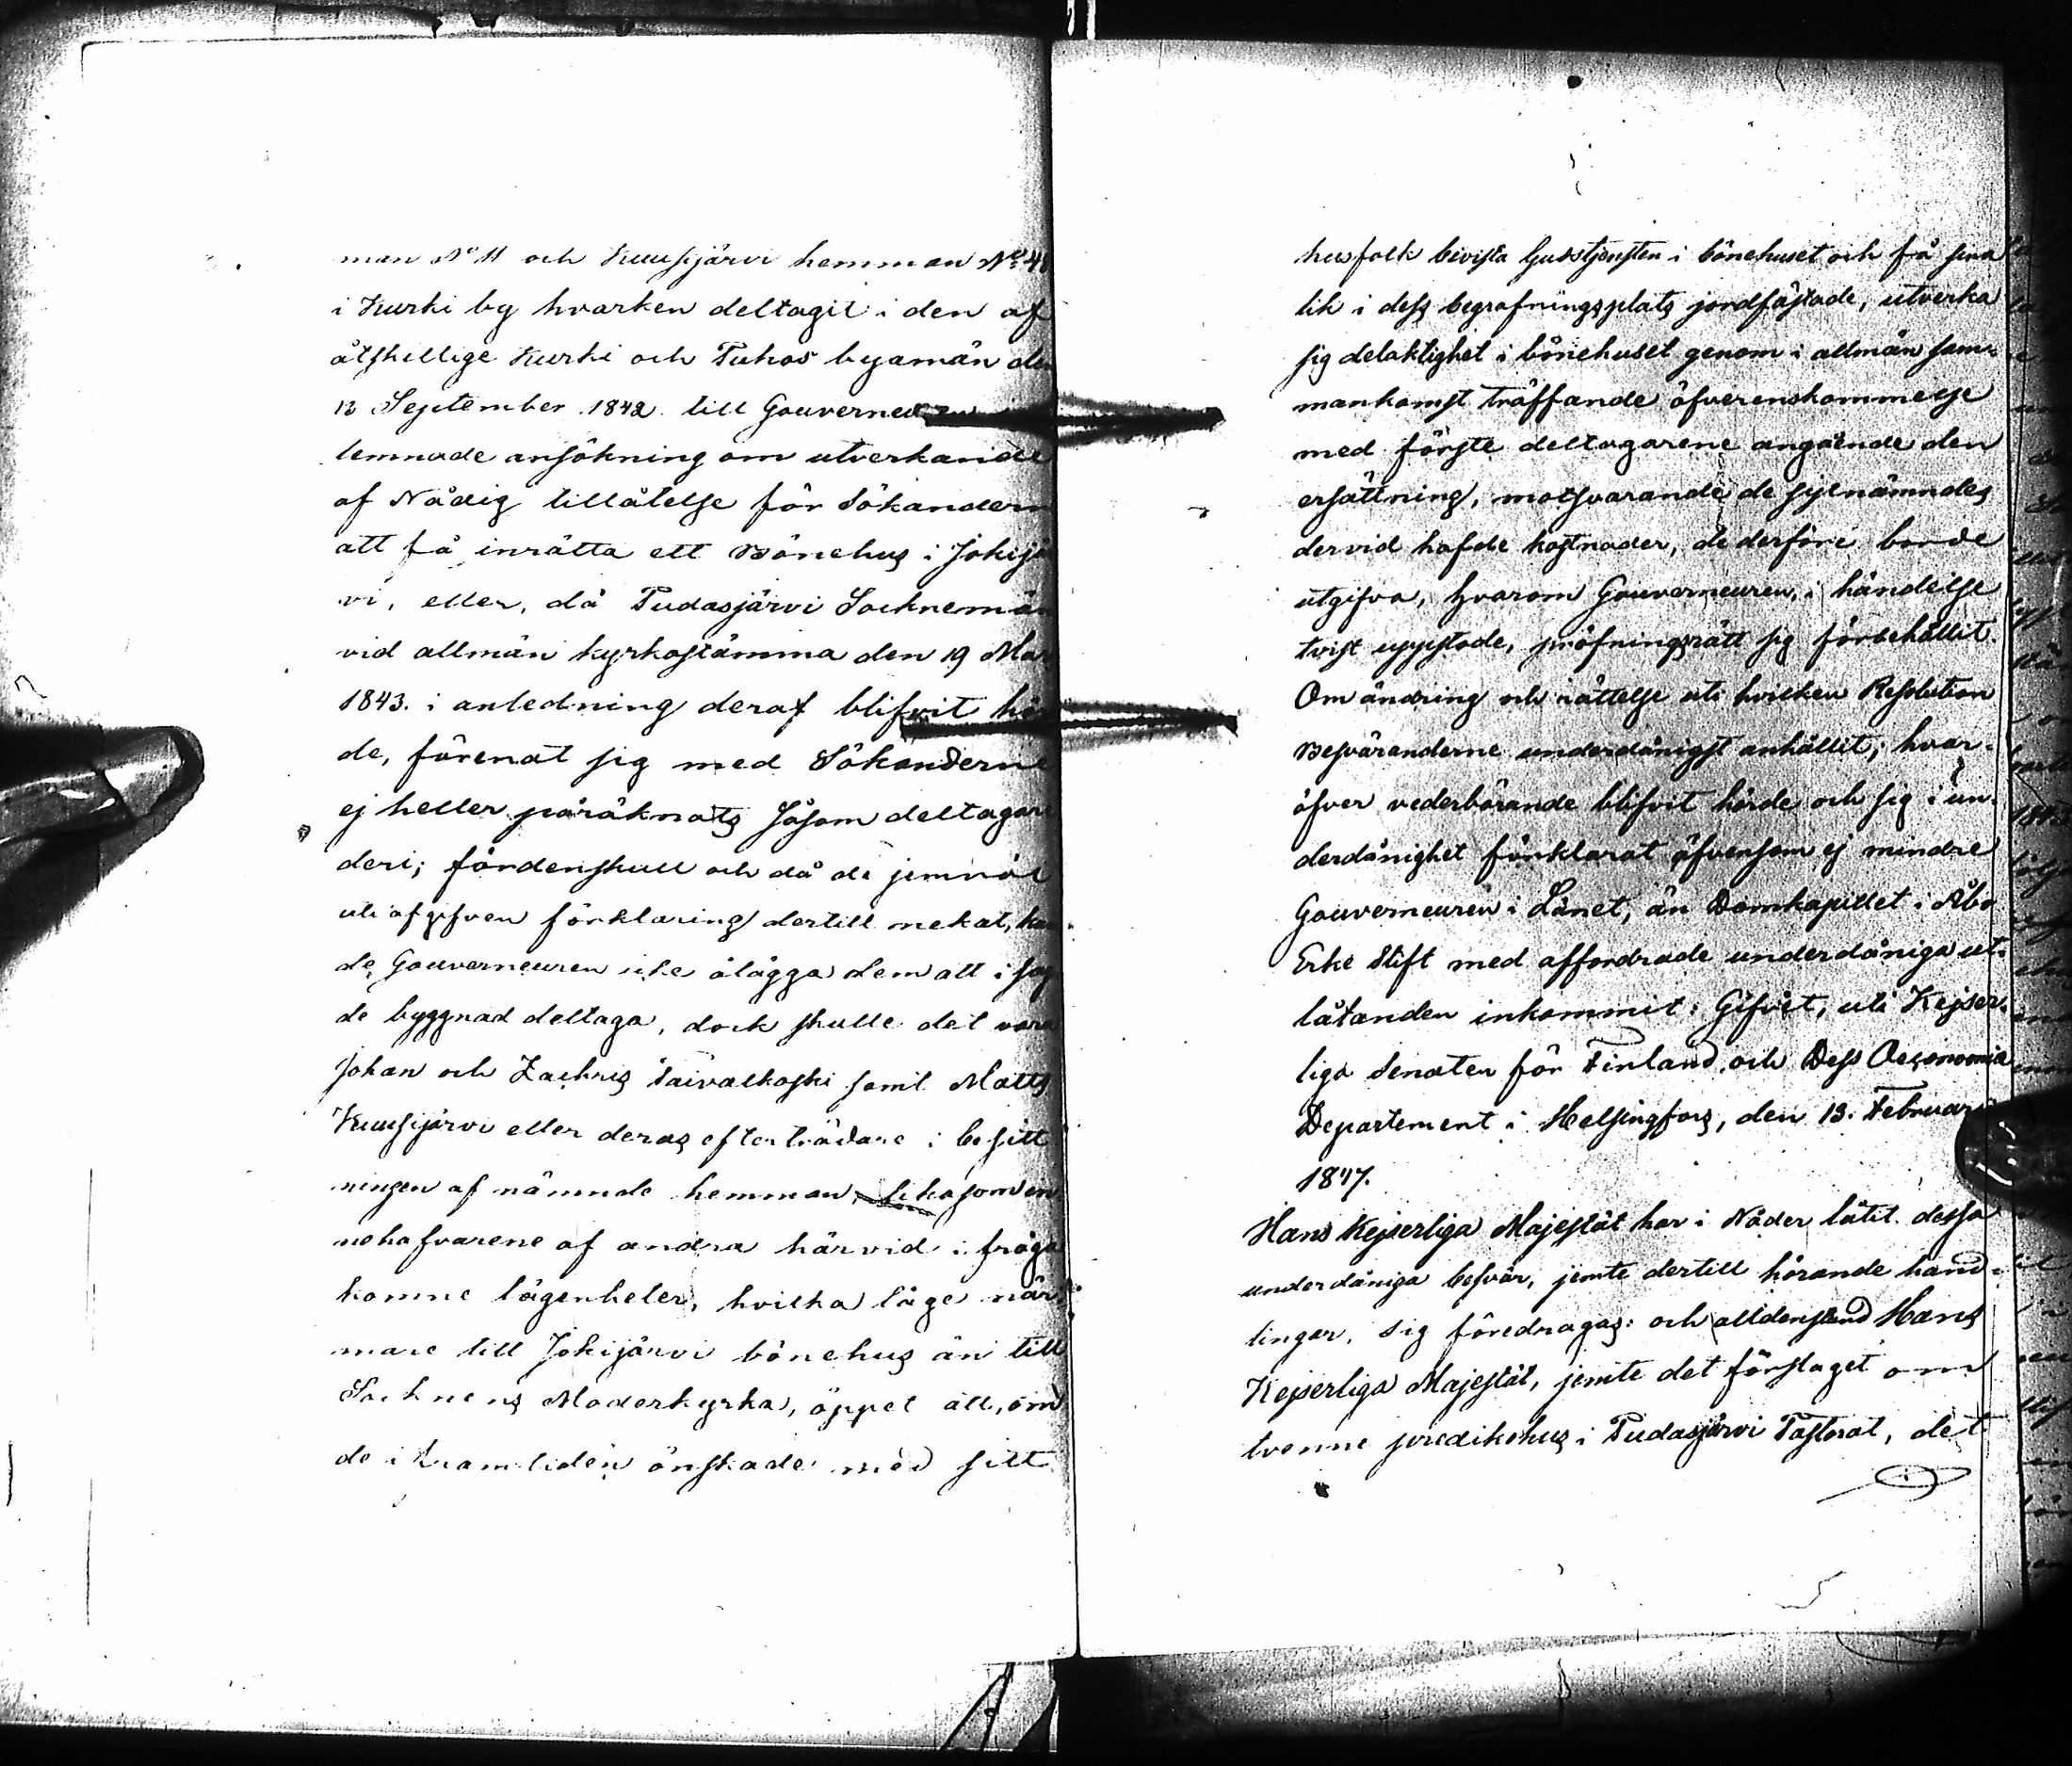 man No 11 och Kuusijärvi hemman No 4
i Kurki by hvarken deltagit i den af
åtskillige Kurki och Puhos byamän den
13 September 1842 till Gouverneuren
lemnade ansökning om utverkande
af Nådig tillåtelse för Sökandern
att få inrätta ett Bönehus i Jokijä
vi, eller, då Pudasjärvi Socknemän
vid allmän kyrkostämma den 19 Mar
1843. i anledning deraf blifvit hö
de, förenat sig med Sökanderne
ej heller påräknats såsom deltagare
deri; fördenskull och då de jemväl
uti afgifven förklaring dertill nekat, kun
de Gouverneuren icke ålägga dem att i sag
de byggnad deltaga, dock skulle det vara
Johan och Zachris Taivalkoski samt Matts
Kuusijärvi eller deras efterträdare i besitt
ningen af nämnde hemman, likasom in
nehafvarene af andra härvid i fråga
komne lägenheter, hvilka läge när
mare till Jokijärvi bönehus än till
Socknens Moderkyrka, öppet att, om
de i framtiden önskade med sitt
husfolk bevista Gudstjensten i bönehuset och få sina
lik i dess begrafningsplats jordfästade, utverka
sig delaktighet i bönehuset genom i allmän sam-
mankomst träffande öfverenskommelse
med förste deltagarene angående den
ersättning, motsvarande de sistnämndes
dervid hafde kostnader, de derföre borde
utgifva, hvarom Gouverneuren, i händelse
tvist uppstode, pröfningsrätt sig förbehållit.
Om ändring och rättelse uti hvilken Resolution
Besväranderne underdånigst anhållit; hvar-
öfver vederbörande blifvit hörde och sig i un-
derdånighet förklarat äfvensom ej mindre
Gouverneuren i Länet, än Domkapitlet i Åbo
Erke Stift med affordrade underdåniga ut-
låtanden inkommit: Gifvet, uti Kejser-
liga Senaten för Finland och Dess Oeconomie
Departement i Helsingfors, den 13. Februari
1847.
Hans Kejserliga Majestät har i Nåder låtit dessa
underdåniga besvär, jemte dertill hörande hand-
lingar, sig föredragas: och alldenstund Hans
Kejserliga Majestät, jemte det förslaget om
tvenne predikohus i Pudasjärvi Pastorat, det